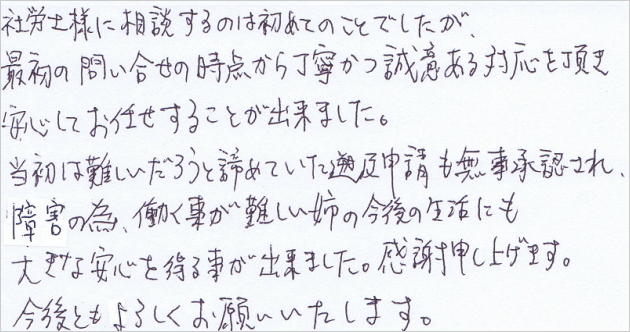 社労士様に相談するのは初めてのことでしたが、
最初の問い合せの時点から丁寧かつ誠意ある対応を頂き
安心してお任せすることが出来ました。
当初は難しいだろうと諦めていた遡及申請も無事承認され、
障害の為、働く事が難しい姉の今後の生活にも
大きな安心を得る事が出来ました。感謝申し上げます。
今後ともよろしくお願いいたします。